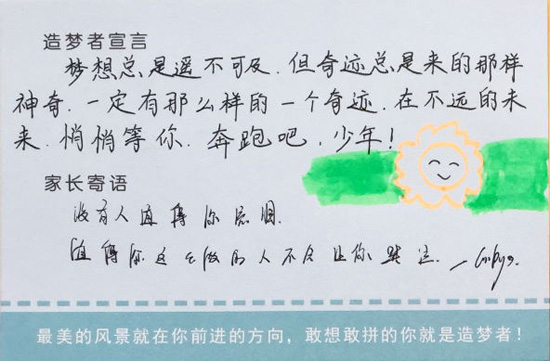 造梦者宣言
梦想总是遥不可及.但奇迹总是来的那样
神奇.一定有那么样的一个奇迹.在不远的未
来.悄悄等你.奔跑吧.少年!
家长寄语
没有人值得你流泪.
值得你这么做的人不会让你哭泣.
最美的风景就在你前进的方向，敢想敢拼的你就是造梦者！